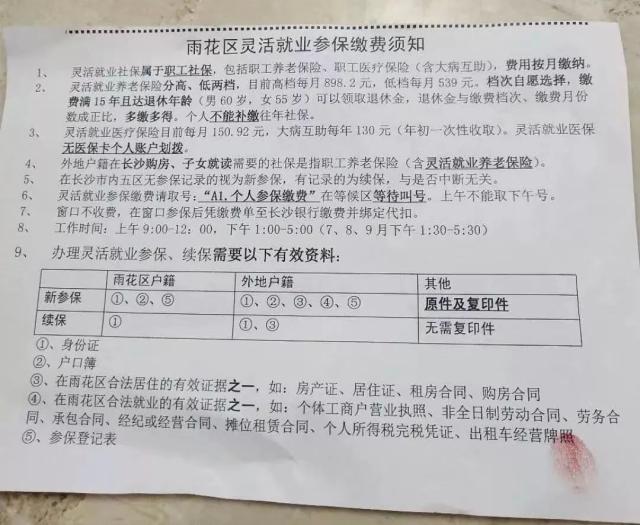 雨花区灵活就业参保缴费须知
1、 灵活就业社保属于职工社保，包括职工养老保险、职工医疗保险（含大病互助），费用按月缴纳。
2、 灵活就业养老保险分高、低两档，目前高档每月 898.2 元，低档每月 539 元。档次自愿选择，缴
费满 15 年且达退休年龄（男 60 岁，女 55 岁）可以领取退休金，退休金与缴费档次、缴费月份
数成正比，多缴多得。个人不能补缴往年社保。
3、 灵活就业医疗保险目前每月 150.92 元，大病互助每年 130 元（年初一次性收取）。灵活就业医保
无医保卡个人账户划拨。
4、 外地户籍在长沙购房、子女就读需要的社保是指职工养老保险（含灵活就业养老保险）。
5、 在长沙市内五区无参保记录的视为新参保，有记录的为续保，与是否中断无关。
6、 灵活就业参保缴费请取号："A1,个人参保缴费"在等候区等待叫号。上午不能取下午号。
7、 窗口不收费，在窗口参保后凭缴费单至长沙银行缴费并绑定代扣。
8、 工作时间：上午 9:00-12：00，下午 1:00-5:00（7、8、9 月下午 1:30-5:30）
9、 办理灵活就业参保、续保需要以下有效资料：
雨花区户籍 外地户籍 其他
新参保 ①、②、⑤ ①、②、③、④、⑤ 原件及复印件
续保 ① ①、③ 无需复印件
①、身份证
②、户口簿
③、在雨花区合法居住的有效证据之一，如：房产证、居住证、租房合同、购房合同
④、在雨花区合法就业的有效证据之一，如：个体工商户营业执照、非全日制劳动合同、劳务合
同、承包合同、经纪或经营合同、摊位租赁合同、个人所得税完税凭证、出租车经营牌照
⑤、参保登记表